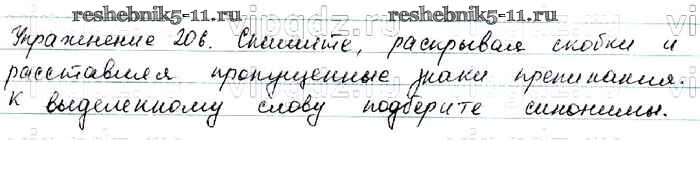 reshebnik5-11.ru reshebnik5-11.ru
Упражнение 206. Спишите, раскрывая скобки и
расставляя пропущенные знаки препинания.
К выделенному слову подберите синонимы.